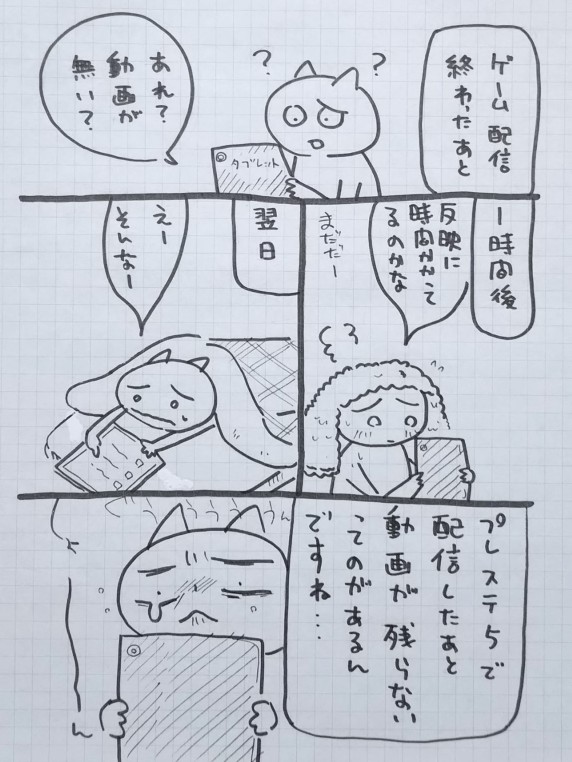 ゲーム配信
終わったあと
あれ?
動画が
無い?
?
?
タブレット
一時間後
反映に
時間かかって
るのかな
まだだー
翌日
えー
そんなー
プレステ5で
配信したあと
動画が残らない
ってのがあるん
ですね…